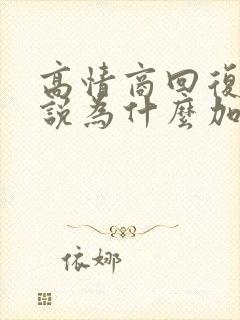 高情商回復
說為什麼加
依娜